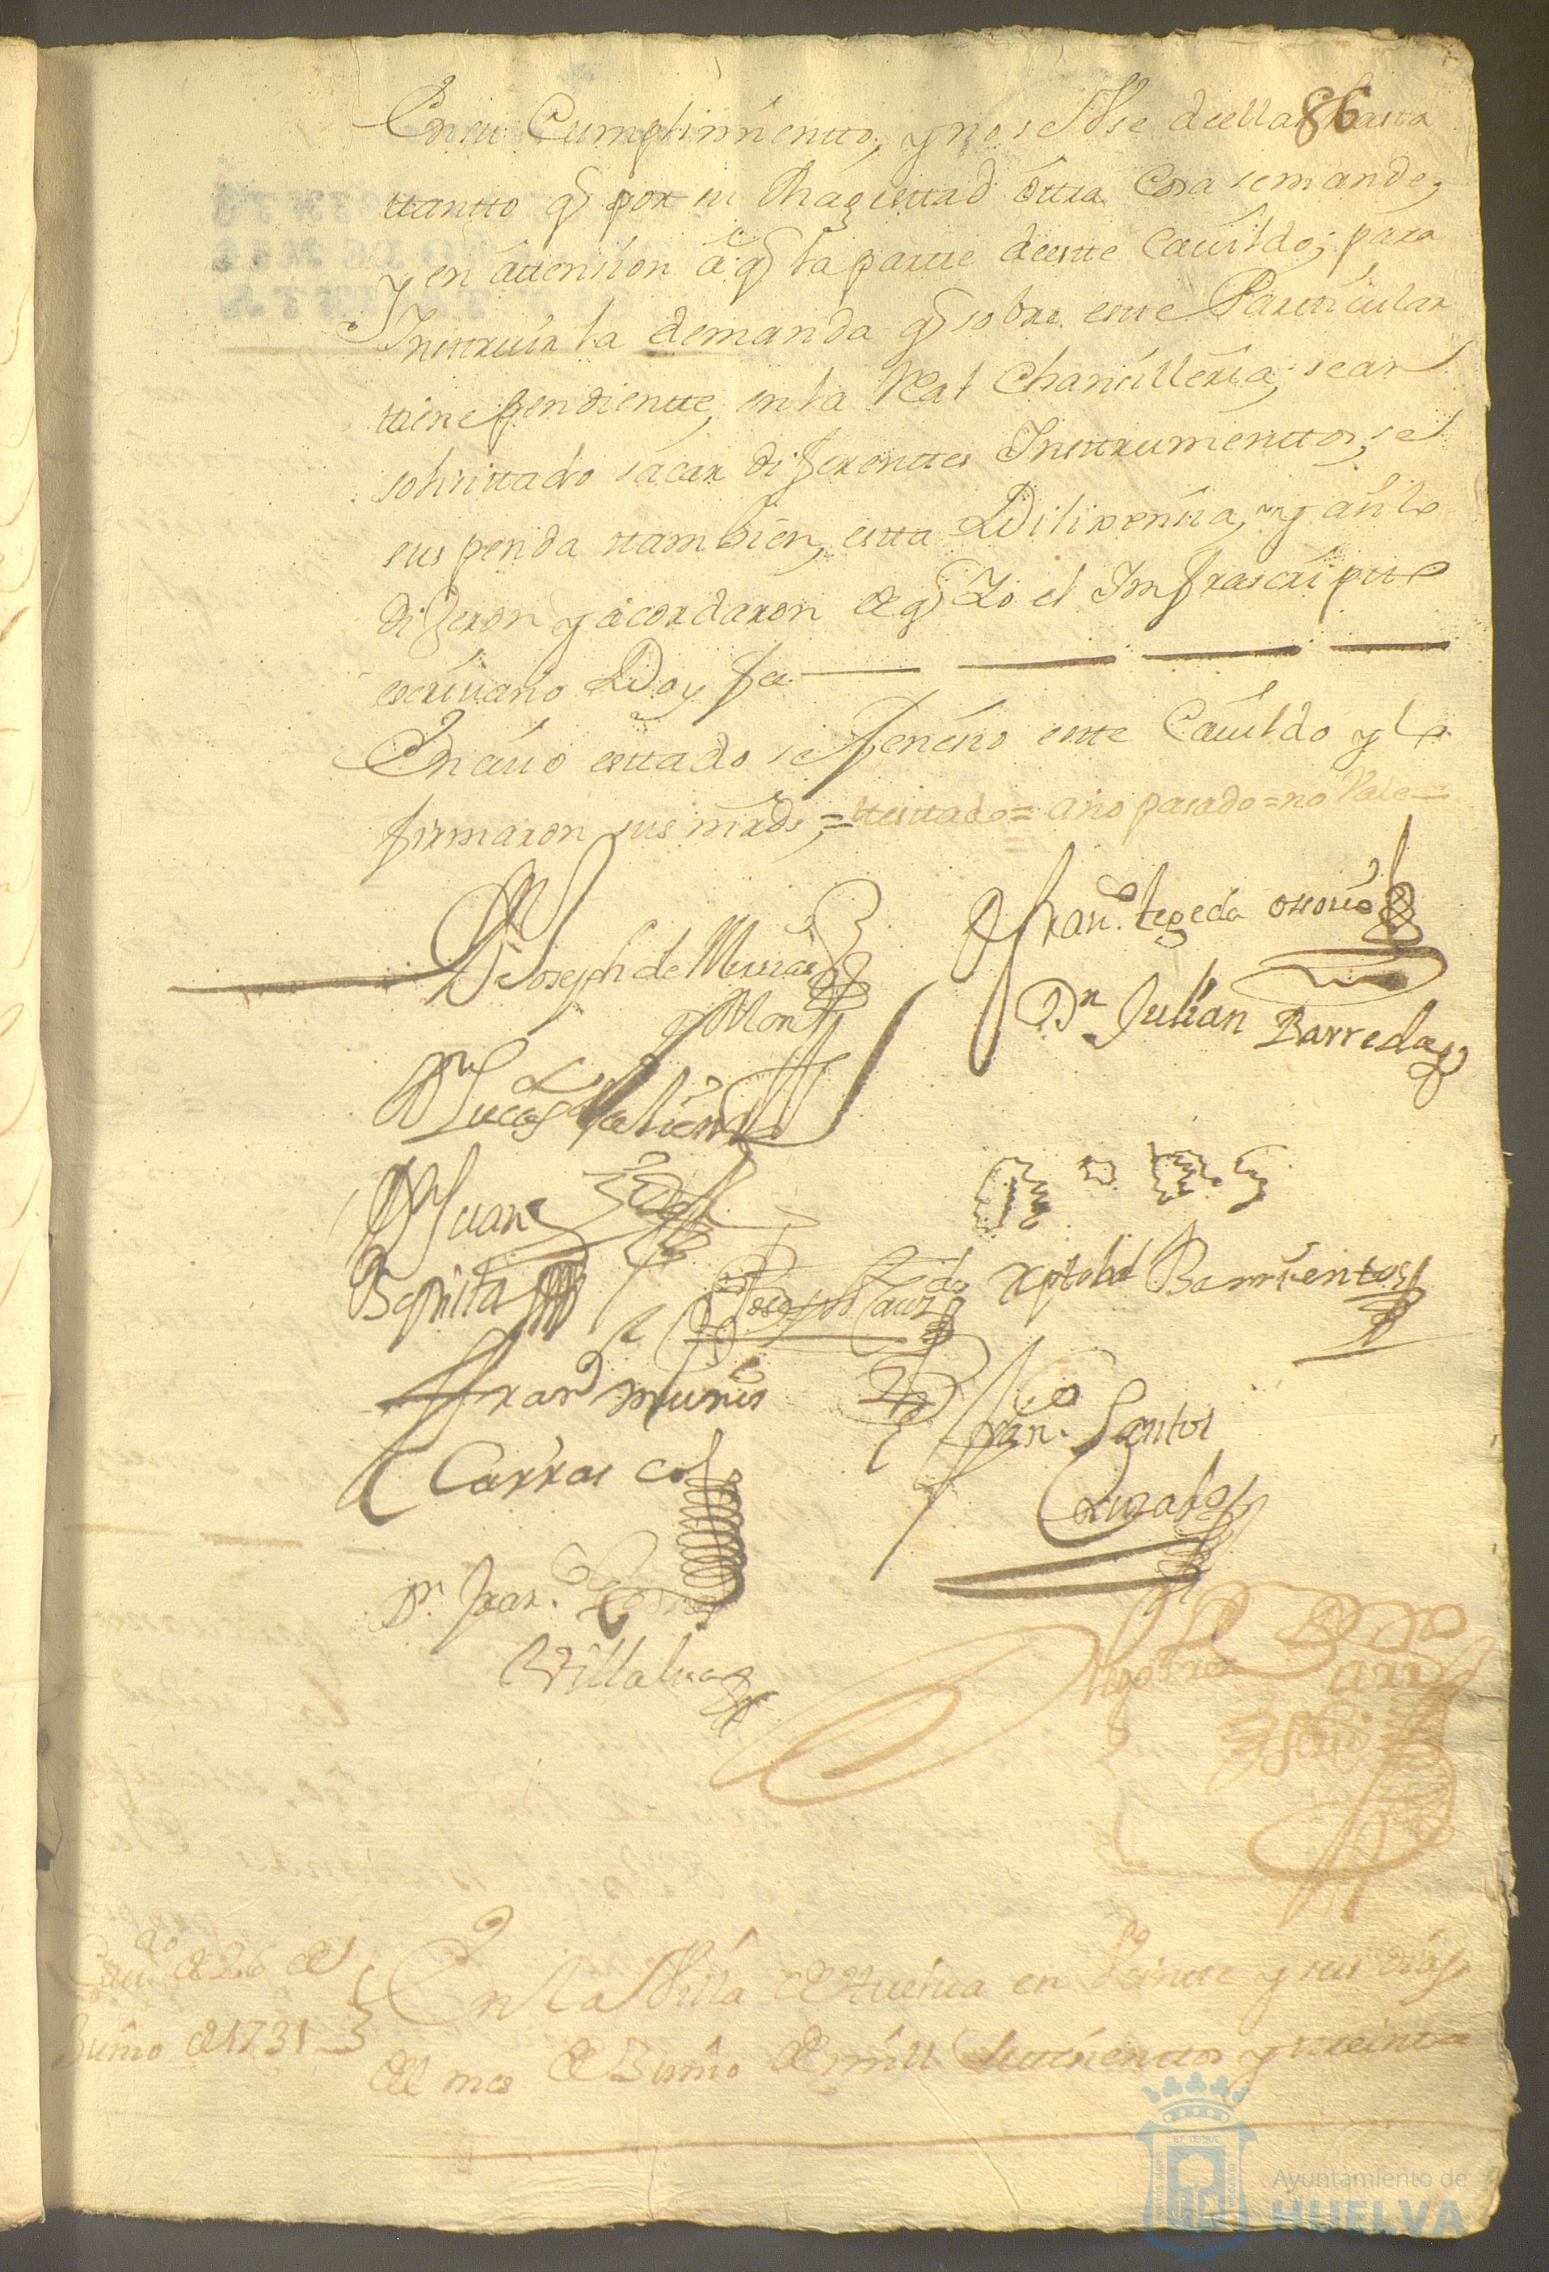 86
En su Cumplimientto, y no se Vse de ella hasta
ttantto q̃ por su Magesttad ôttra Cosa se mande,
y en âttension â q̃ la partte de estte Cauildo, para
Ynsttruir la demanda q̃ sobre estte Partticular
tiene pendientte, en la Real Chansilleria, se an
solisittado sacar diferenttes Ynsttrumenttos, se
suspenda ttambien, estta Dilixensia, y asi lo
dijeron y acordaron de q̃ Yo el Ynfrascriptto
escriuano Doy fee
En cuio esttado se fenesio estte Cauildo y lo
firmaron sus mrds, = ttesttado = año pasado = no Vale =
Joseph de
Franco. tegeda ossorio
Dn Julian Barreda
Dn Lucas
Dn Juan
Xptobal Barrientos
Joseph
Franco munis
Carrasco
Franco. Santos
Dn. Franco.
Villalua
Diego
Caudo de 26 de
Junio de 1731
En la Villa de Huelua en Veintte y seis dias
del mes de Junio de mill settesienttos y treintta
Ayuntamiento de
HUELVA